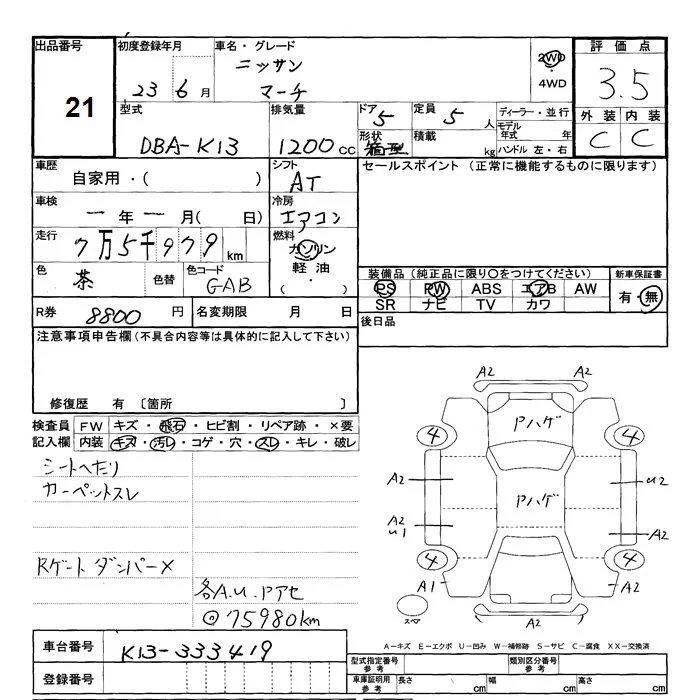 出品番号 初度登録年月 車名・グレード 評価点
21
23 6月
ニッサン
マーチ
2WD
4WD
3.5
型式 排気量 ドア 定員 ディーラー・並行 外装 内装
DBA-K13 1200cc 5 5人
モデル年式 年
C C
形状 箱型 積載 kg ハンドル 左・右
車歴 シフト セールスポイント (正常に機能するものに限ります)
自家用・( ) AT
車検 冷房
一年一月( 日) エアコン
走行 燃料
7万5千979km ガソリン
軽油・
( ・ )
色 茶 色替 色コード GAB
装備品 (純正品に限り○をつけてください) 新車保証書
PS PW ABS エアB AW 有・無
SR ナビ TV カワ
R券 8800円 名変期限 月 日
後日品
注意事項申告欄 (不具合内容等は具体的に記入して下さい)
修復歴 有 〔箇所 〕
検査員 FW キズ・飛石・ヒビ割・リペア跡・×要
記入欄 内装 キズ・汚レ・コゲ・穴・スレ・キレ・破レ
シートへたり
カーペットスレ
Rゲートダンパー×
各A.U.Pアセ
◎75980km
A2 A2
Pハゲ
4 4
A2 U2
Pハゲ
A2
U1
A2
4 4
A1 A2
A2
スペア
A-キズ E-エクボ U-凹み W-補修跡 S-サビ C-腐食 XX-交換済
車台番号 K13-333419
登録番号
型式指定番号 参考 類別区分番号 参考
車庫証明用 参考 長さ cm 幅 cm 高さ cm